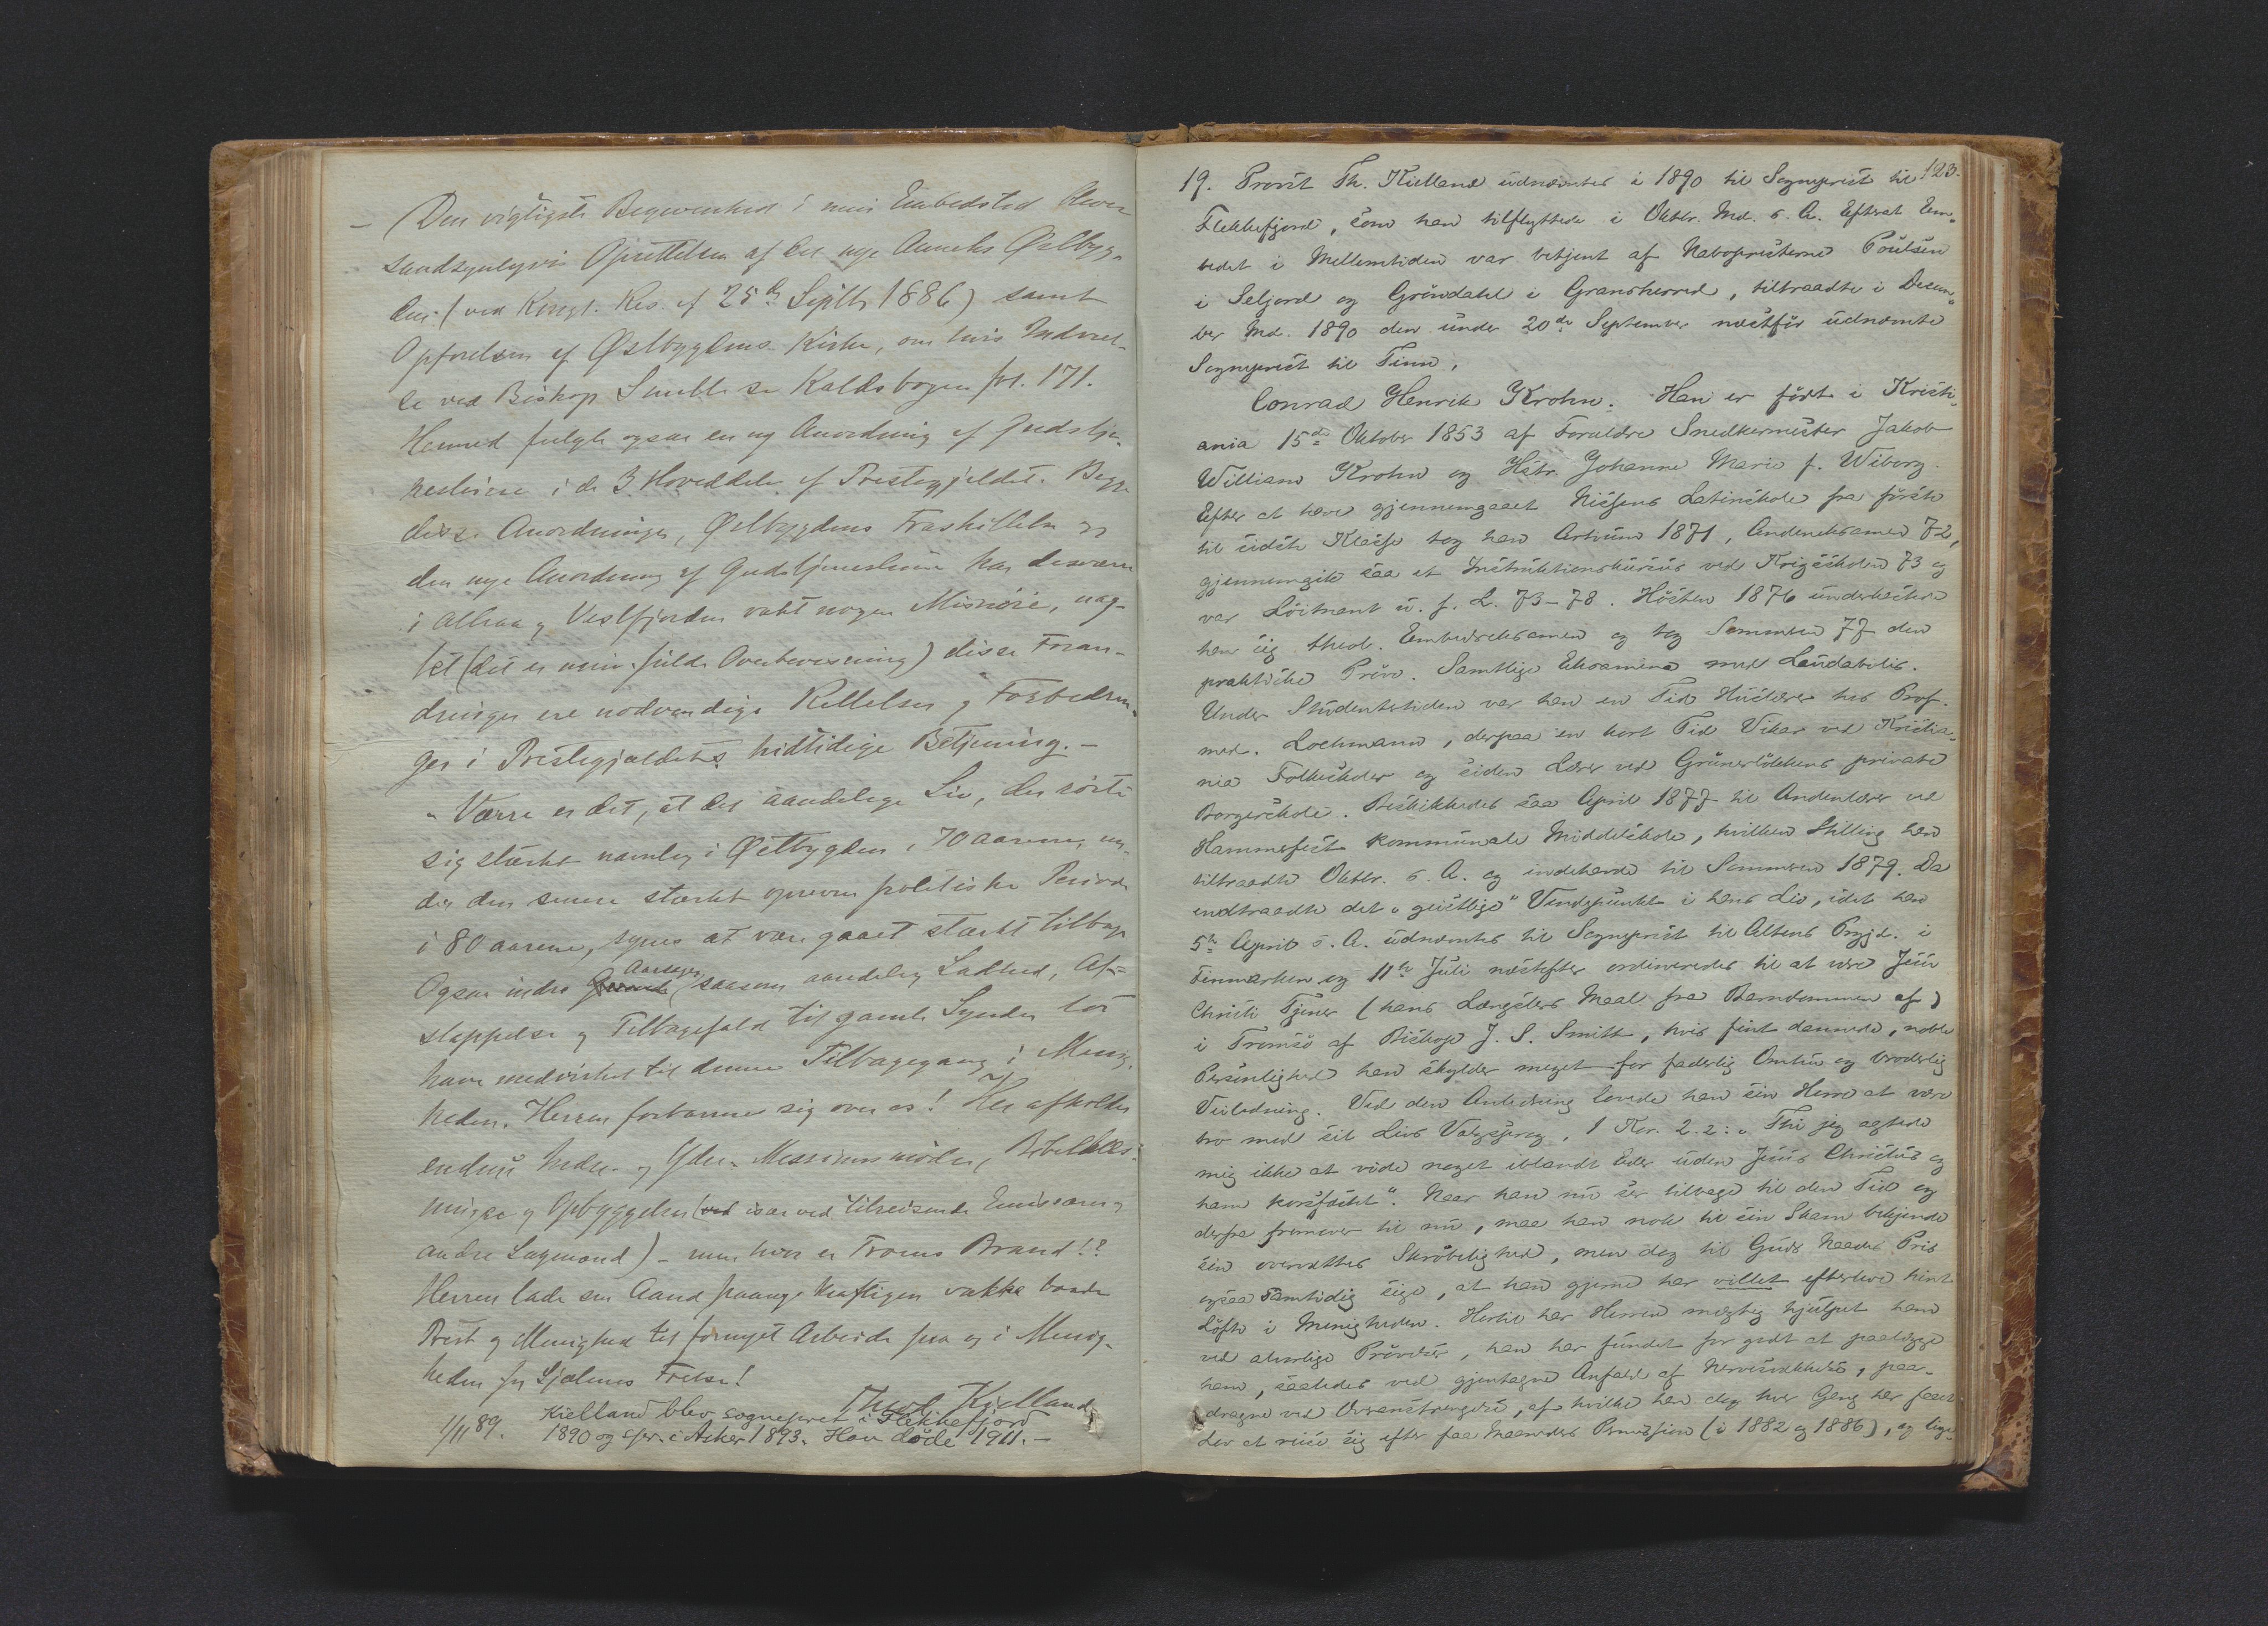 – Den vigtigste Begivenhed i min Embedstid bliver
sandsynligvis Oprettelsen af det nye Anneks Østbyg-
den (ved Kongl. Res. af 25de Septbr 1886) samt
Opførelsen af Østbygdens Kirke, om hvis Indviel-
se ved Biskop Smitt se Kaldsbogen fol. 171.
Hermed fulgte ogsaa en ny Anordning af Gudstje-
nesterne i de 3 Hoveddele af Præstegjeldet. Begge
disse Anordninger, Østbygdens Fraskillelse og
den nye Anordning af Gudstjenesterne har desværre
i Atraa og Vestfjorden vakt nogen Misnöie, uag-
tet (det er min fulde Overbevisning) disse Foran-
dringer ere nödvendige Rettelser og Forbedrin-
ger i Præstegjældets hidtidige Betjening. –
" Værre er det, at det aandelige Liv, der rörte
sig stærkt navnlig i Østbygden i 70 aarene, un-
der den senere stærkt oprevne politiske Periode
i 80 aarene, synes at være gaaet stærkt tilbage
Ogsaa indre Aarsager (saasom aandelig Ladhed, Af-
slappelse og Tilbagefald til gamle Synder tör
have medvirket til denne Tilbagegang i Menig-
heden. Herren forbarme sig over os! Her afholdes
endnu Indre- og Ydre- Missionsmöder, Bibellæs-
ninger og Opbyggelser (ved især ved tilreisende Emissærer og
andre Lægmænd) – men hvor er Troens Brand!?
Herren lade sin Aand paany kraftigen vække baade
Præst og Menighed til fornyet Arbeide paa og i Menig-
heden for Sjælenes Frelse!
Throd Kielland
1/11 89. Kielland blev sogneprest i Flekkefjord
1890 og spr. i Asker 1893. Han döde 1911. –
123.
19. Provst Th. Kielland udnævntes i 1890 til Sogneprest til
Flekkefjord, som han tilflyttede i Oktbr. Md. s. A. Efterat Em-
bedet i Mellemtiden var betjent af Nabopresterne Poulsen
i Seljord og Gröndahl i Gransherred, tiltraadte i Decem-
ber Md. 1890 den under 20de September næstför udnævnte
Sogneprest til Tinn,
Conrad Henrik Krohn. Han er födt i Kristi-
ania 15de Oktober 1853 af Foreldre Snedkermester Jakob
William Krohn og Hstr. Johanne Marie f. Wiborg.
Efter at have gjennemgaaet Nissens Latinskole fra förste
til sidste Klasse tog han Artium 1871, Andeneksamen 72,
gjennemgik saa et Instruktionskursus ved Krigsskolen 73 og
var Löitnant u. f. L. 73–78. Hösten 1876 underkastede
han sig theol. Embedseksamen og tog Sommeren 77 den
praktiske Pröve. Samtlige Eksamina med Laudabilis.
Under Studentertiden var han en Tid Huslærer hos Prof.
med. Lochmann, derpaa en kort Tid Vikar ved Kristia-
nia Folkeskoler og siden Lærer ved Grünerlökkens private
Borgerskole. Beskikkedes saa April 1877 til Andenlærer ved
Hammerfest kommunale Middelskole, hvilken Stilling han
tiltraadte Oktbr. s. A. og indehavde til Sommeren 1879. Da
indtraadte det "geistlige" Vendepunkt i hans Liv, idet han
5te April s. A. udnævntes til Sogneprest til Altens Prgjd. i
Finmarken og 11te Juli næstefter ordineredes til at være Jesu
Christi Tjener (hans Længslers Maal fra Barndommen af)
i Tromsö af Biskop J. S. Smitt, hvis fint dannede, noble
Personlighed han skylder meget for faderlig Omhu og broderlig
Veiledning. Ved den Anledning lovede han sin Herre at være
tro med sit Livs Valgsprog, 1 Kor. 2. 2: " Thi jeg agtede
mig ikke at vide noget iblandt Eder uden Jesus Christus og
ham korsfæstet". Naar han nu ser tilbage til den Tid og
derfra fremover til nu, maa han nok til sin Skam bekjende
sin overvættes Skröbelighed, men dog til Guds Naades Pris
ogsaa samtidig sige, at han gjerne har villet efterleve hint
Löfte i Menigheden. Hertil har Herren mægtig hjulpet ham
ved alvorlige Prövelser, han har fundet for godt at paalægge
ham, saaledes ved gjentagne Anfald af Nervesvækkelse, paa-
dragne ved Overanstrengelse, af hvilke han dog hver Gang har faaet
Lov at reise sig efter faa Maaneders Permission (i 1882 og 1886), og lige-